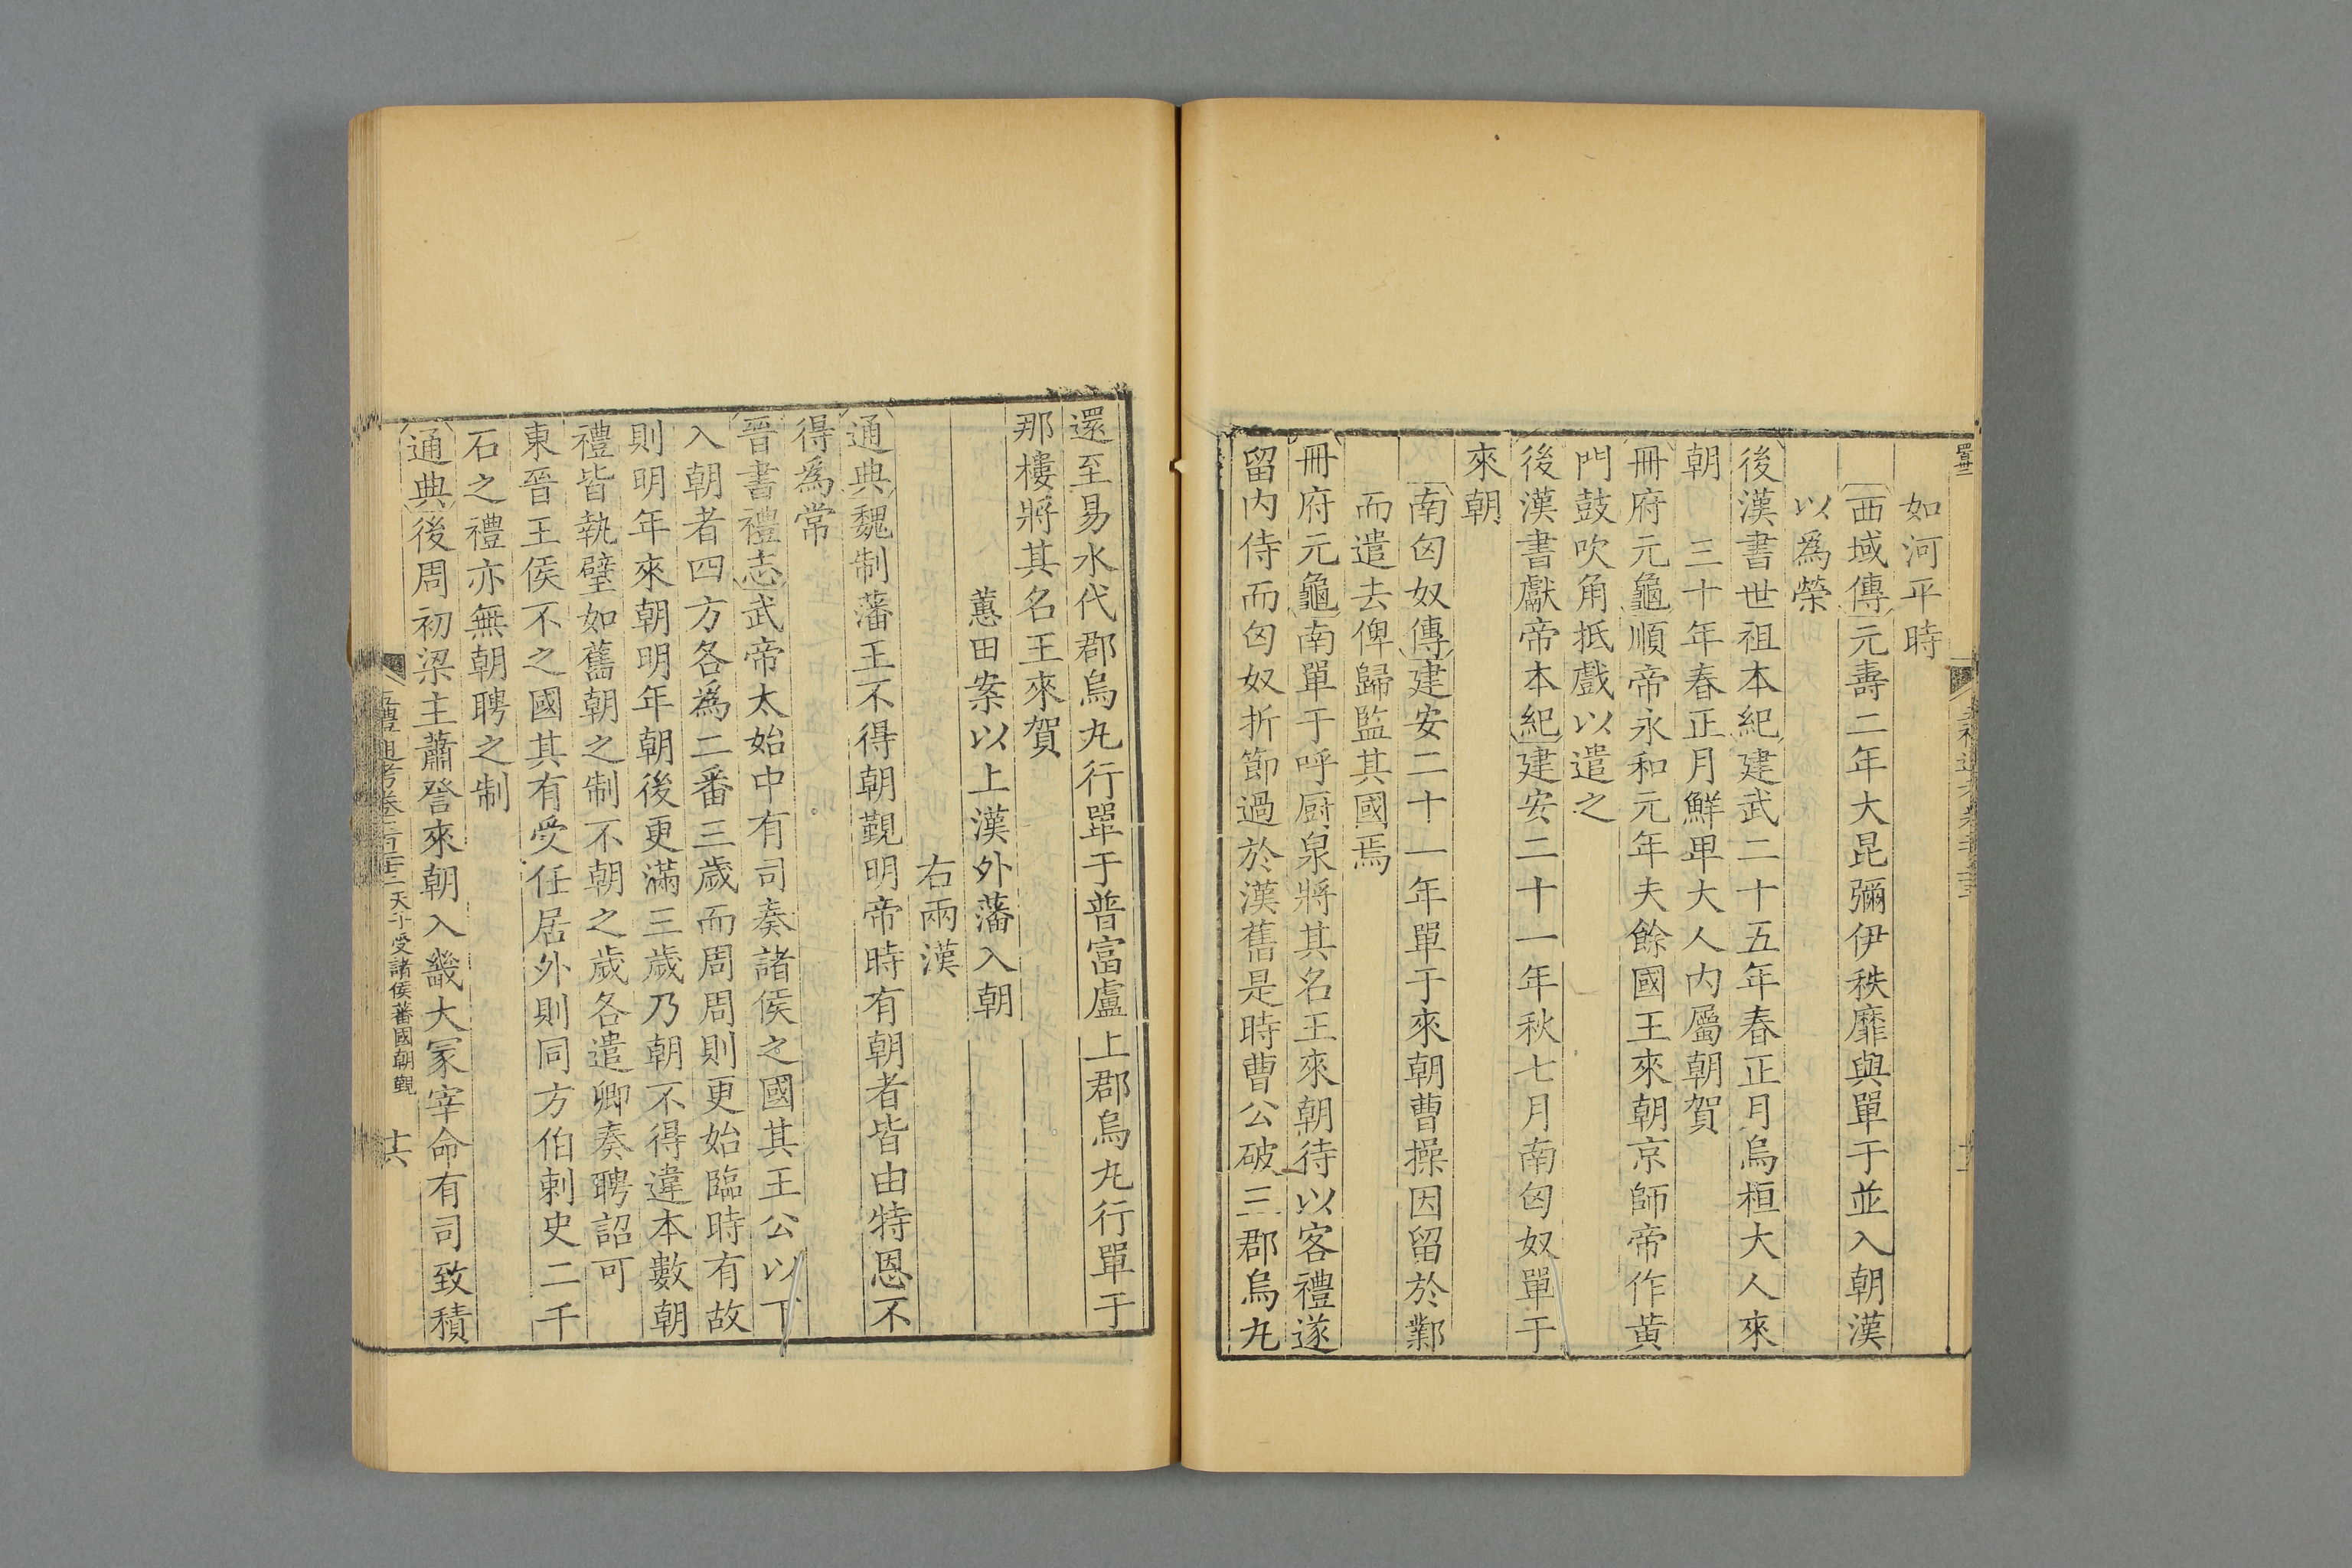 如河平時
西域傳元壽二年大昆彌伊秩靡與單于並入朝漢
以爲榮
後漢書世祖本紀建武二十五年春正月烏桓大人來
朝　三十年春正月鮮卑大人內屬朝賀
冊府元龜順帝永和元年夫餘國王來朝京師帝作黃
門鼓吹角抵戲以遣之
後漢書獻帝本紀建安二十一年秋七月南匈奴單于
來朝
南匈奴傳建安二十一年單于來朝曹操因留於鄴
而遣去俾歸監其國焉
冊府元龜南單于呼廚泉將其名王來朝待以客禮遂
留內侍而匈奴折節過於漢舊是時曹公破三郡烏丸
還至易水代郡烏丸行單于普富盧上郡烏丸行單于
那樓將其名王來賀
蕙田案以上漢外藩入朝
右兩漢
通典魏制藩王不得朝覲明帝時有朝者皆由特恩不
得爲常
晉書禮志武帝太始中有司奏諸侯之國其王公以下
入朝者四方各爲二番三歲而周周則更始臨時有故
則明年來朝明年朝後更滿三歲乃朝不得違本數朝
禮皆執璧如舊朝之制不朝之歲各遣卿奏聘詔可
東晉王侯不之國其有受任居外則同方伯刺史二千
石之禮亦無朝聘之制
通典後周初梁主蕭詧來朝入畿大冢宰命有司致積
五禮通考卷二百二十二　天子受諸侯蕃國朝覲　十六